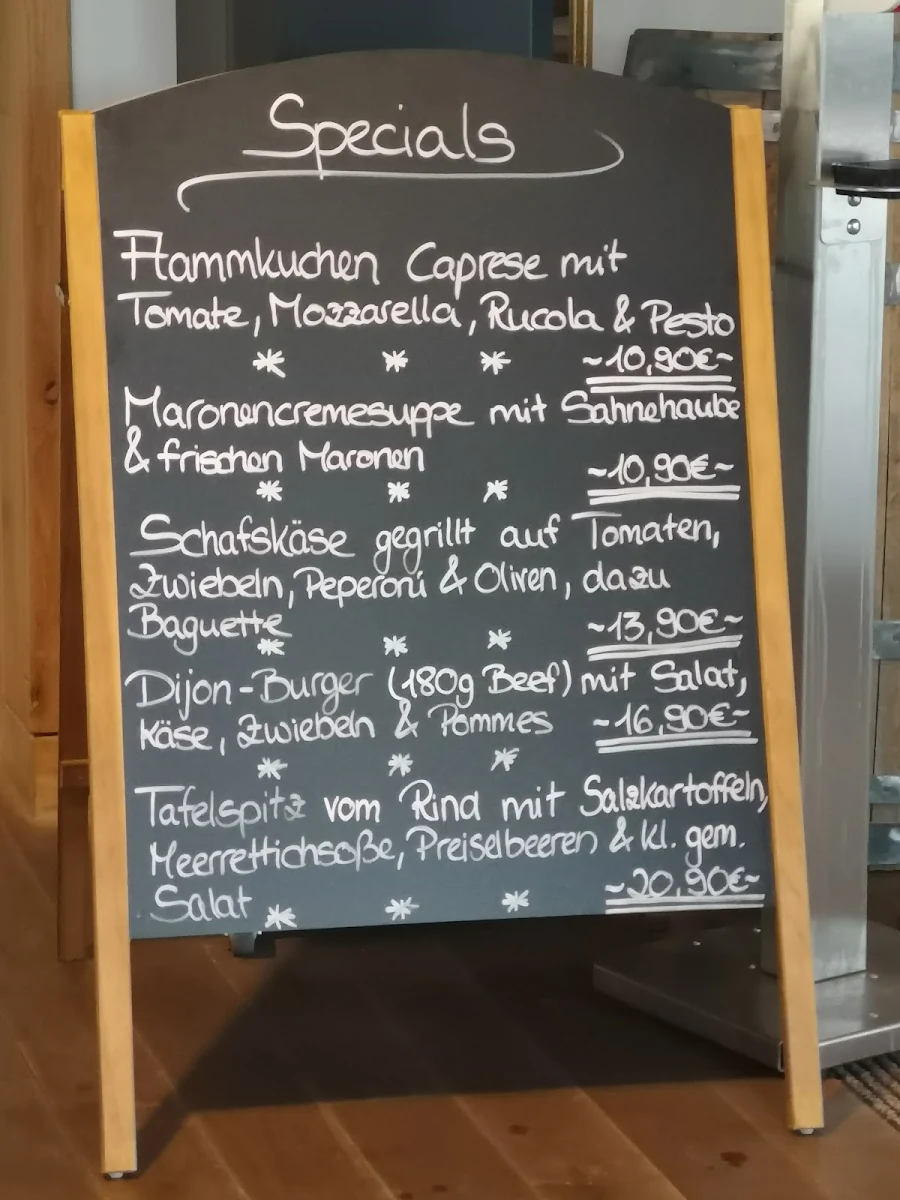 Specials
Flammkuchen Caprese mit
Tomate, Mozzarella, Rucola & Pesto
* * * ~10,90€~
Maronencremesuppe mit Sahnehaube
& frischen Maronen
* * * ~10,90€~
Schafskäse gegrillt auf Tomaten,
Zwiebeln, Peperoni & Oliven, dazu
Baguette ~13,90€~
* * *
Dijon-Burger (180g Beef) mit Salat,
Käse, Zwiebeln & Pommes ~16,90€~
* * *
Tafelspitz vom Rind mit Salzkartoffeln,
Meerrettichsoße, Preiselbeeren & kl. gem.
Salat * * * ~20,90€~